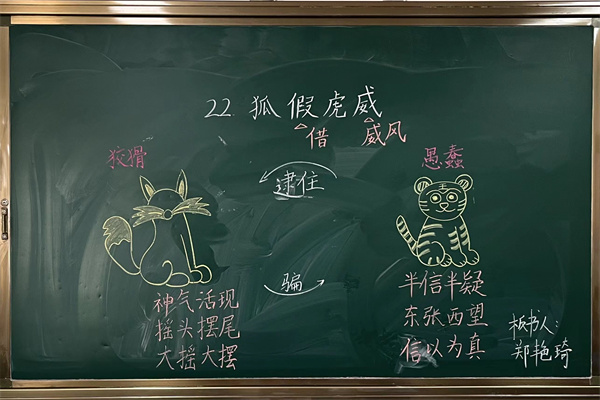 22 狐假虎威
借 威风
狡猾
愚蠢
逮住
骗
神气活现
摇头摆尾
大摇大摆
半信半疑
东张西望
信以为真
板书人：
郑艳琦